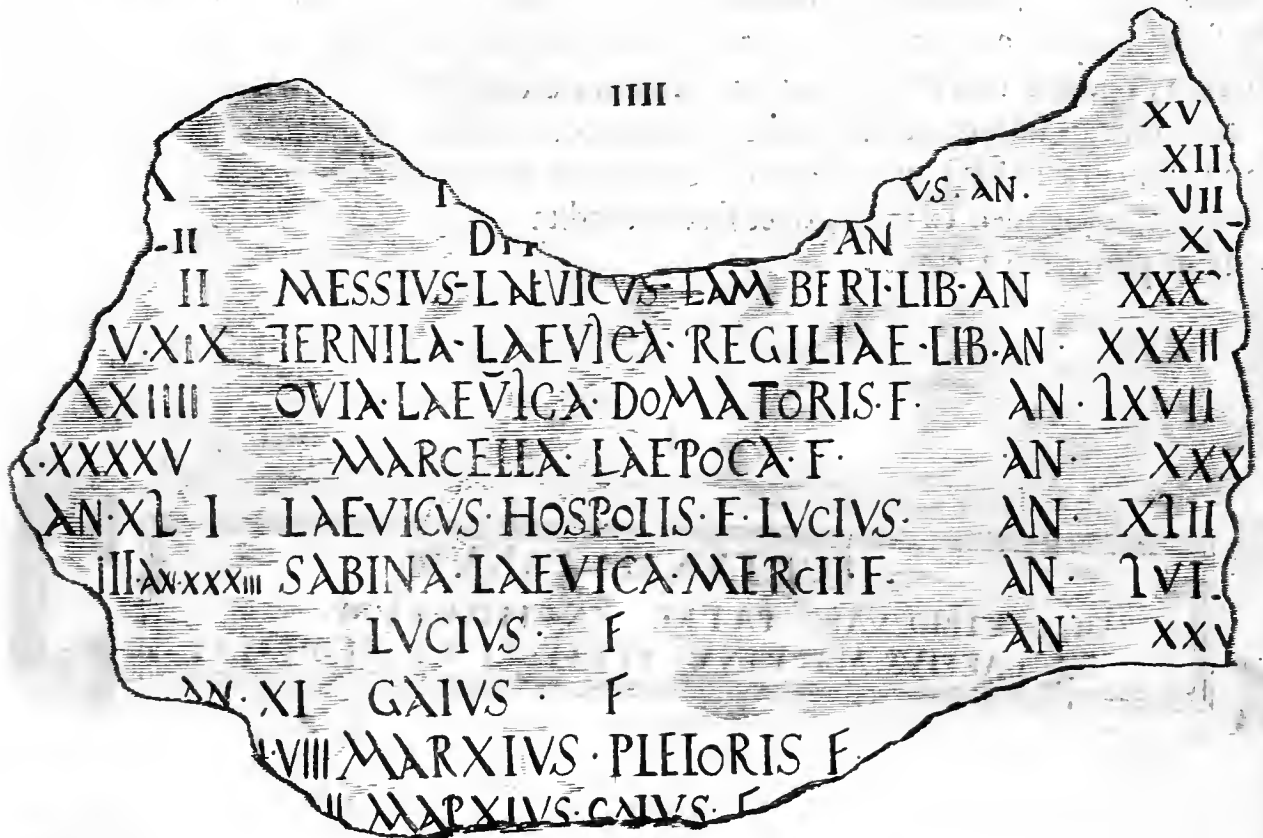 IIII
XV
XII
VS · AN · VII
II AN XV
II MESSIVS - LAEVICVS - LAMBERI · LIB · AN XXX
V · XIX TERNILA · LAEVICA · REGILIAE · LIB · AN · XXXII
XIIII OVIA · LAEVICA · DOMATORIS · F · AN · LXVII
· XXXXV MARCELLA · LAEPOCA · F · AN · XXX
AN · XL I LAEVICVS · HOSPOLIS · F · LVCIVS · AN · XLII
III · AN · XXXIII SABINA · LAEVICA · MERCII · F · AN · LVI
LVCIVS · F AN XXV
AN · XI GAIVS · F
VIII MARXIVS · PLEIORIS F
II MARXIVS · GAIVS · F